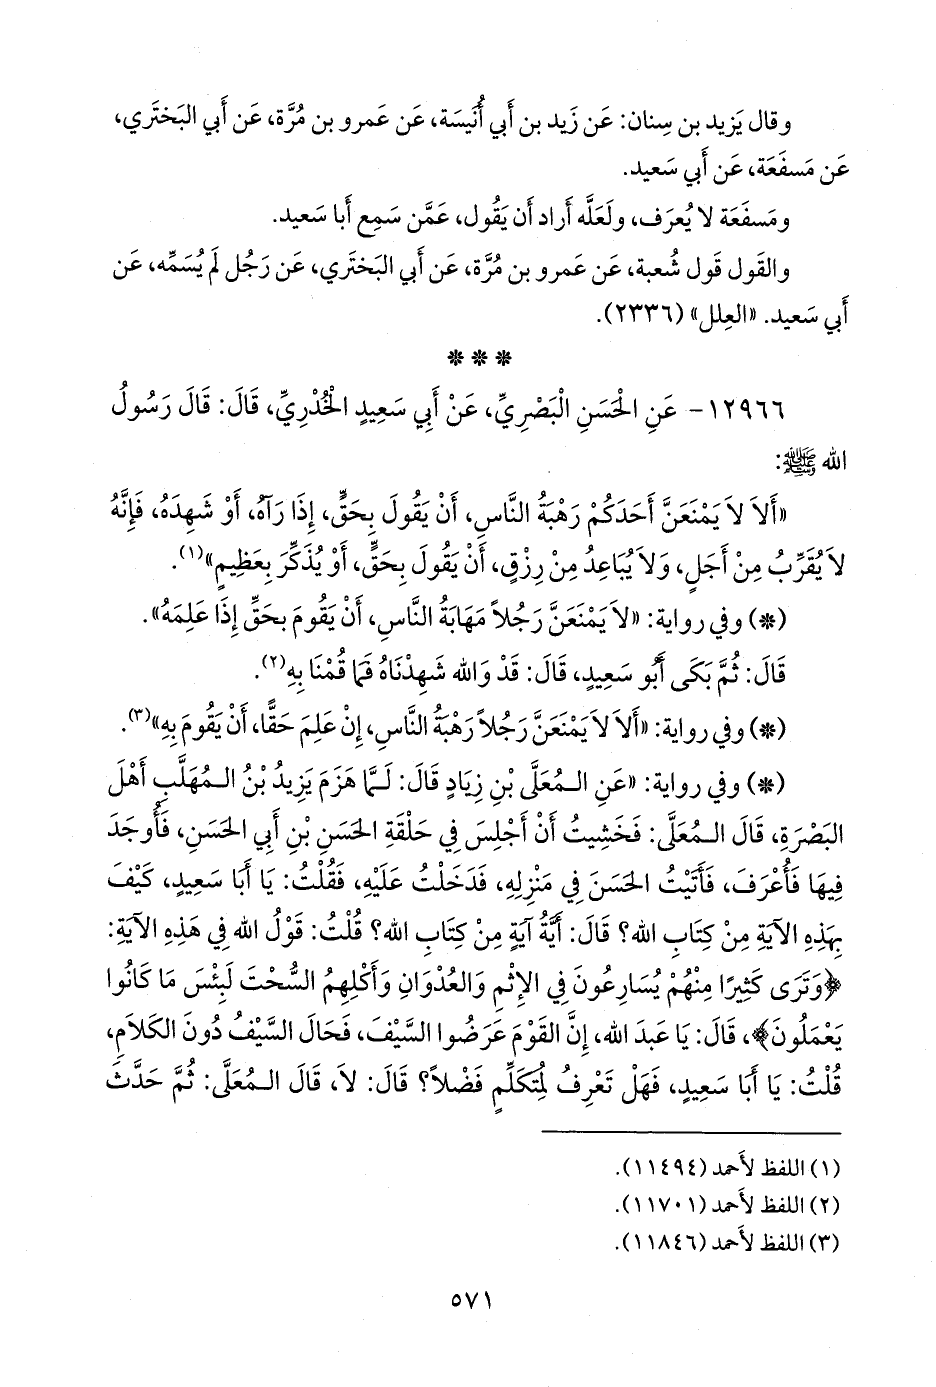 وقال يَزيد بن سِنان: عَن زَيد بن أَبي أُنَيسَة، عَن عَمرو بن مُرَّة، عَن أَبي البَختَري،
عَن مَسفَعَة، عَن أَبي سَعيد.
ومَسفَعَة لا يُعرَف، ولَعَلَّه أَراد أَن يَقُول، عَمَّن سَمِع أَبا سَعيد.
والقَول قَول شُعبة، عَن عَمرو بن مُرَّة، عَن أَبي البَختَري، عَن رَجُل لَم يُسَمِّه، عَن
أَبي سَعيد. «العِلل» (٢٣٣٦).
* * *
١٢٩٦٦- عَنِ الْحَسَنِ الْبَصْرِيِّ، عَنْ أَبِي سَعِيدٍ الْخُدْرِيِّ، قَالَ: قَالَ رَسُولُ
الله ﷺ:
«أَلاَ لاَ يَمْنَعَنَّ أَحَدَكُمْ رَهْبَةُ النَّاسِ، أَنْ يَقُولَ بِحَقٍّ، إِذَا رَآهُ، أَوْ شَهِدَهُ، فَإِنَّهُ
لاَ يُقَرِّبُ مِنْ أَجَلٍ، وَلاَ يُبَاعِدُ مِنْ رِزْقٍ، أَنْ يَقُولَ بِحَقٍّ، أَوْ يُذَكِّرَ بِعَظِيمٍ»(١).
(*) وفي رواية: «لاَ يَمْنَعَنَّ رَجُلاً مَهَابَةُ النَّاسِ، أَنْ يَقُومَ بِحَقٍّ إِذَا عَلِمَهُ».
قَالَ: ثُمَّ بَكَى أَبُو سَعِيدٍ، قَالَ: قَدْ وَالله شَهِدْنَاهُ فَمَا قُمْنَا بِهِ(٢).
(*) وفي رواية: «أَلاَ لاَ يَمْنَعَنَّ رَجُلاً رَهْبَةُ النَّاسِ، إِنْ عَلِمَ حَقًّا، أَنْ يَقُومَ بِهِ»(٣).
(*) وفي رواية: «عَنِ المُعَلَّى بْنِ زِيَادٍ قَالَ: لَمَّا هَزَمَ يَزِيدُ بْنُ المُهَلَّبِ أَهْلَ
البَصْرَةِ، قَالَ المُعَلَّى: فَخَشِيتُ أَنْ أَجْلِسَ فِي حَلْقَةِ الحَسَنِ بْنِ أَبِي الحَسَنِ، فَأُوجَدَ
فِيهَا فَأُعْرَفَ، فَأَتَيْتُ الحَسَنَ فِي مَنْزِلِهِ، فَدَخَلْتُ عَلَيْهِ، فَقُلْتُ: يَا أَبَا سَعِيدٍ، كَيْفَ
بِهَذِهِ الآيَةِ مِنْ كِتَابِ الله؟ قَالَ: أَيَّةُ آيَةٍ مِنْ كِتَابِ الله؟ قُلْتُ: قَوْلُ الله فِي هَذِهِ الآيَةِ:
﴿وَتَرَى كَثِيرًا مِنْهُمْ يُسَارِعُونَ فِي الإِثْمِ وَالعُدْوَانِ وَأَكْلِهِمُ السُّحْتَ لَبِئْسَ مَا كَانُوا
يَعْمَلُونَ﴾، قَالَ: يَا عَبدَ الله، إِنَّ القَوْمَ عَرَضُوا السَّيْفَ، فَحَالَ السَّيْفُ دُونَ الكَلاَمِ،
قُلْتُ: يَا أَبَا سَعِيدٍ، فَهَلْ تَعْرِفُ لِمُتَكَلِّمٍ فَضْلاً؟ قَالَ: لاَ، قَالَ المُعَلَّى: ثُمَّ حَدَّثَ
(١) اللفظ لأَحمد (١١٤٩٤).
(٢) اللفظ لأَحمد (١١٧٠١).
(٣) اللفظ لأَحمد (١١٨٤٦).
٥٧١